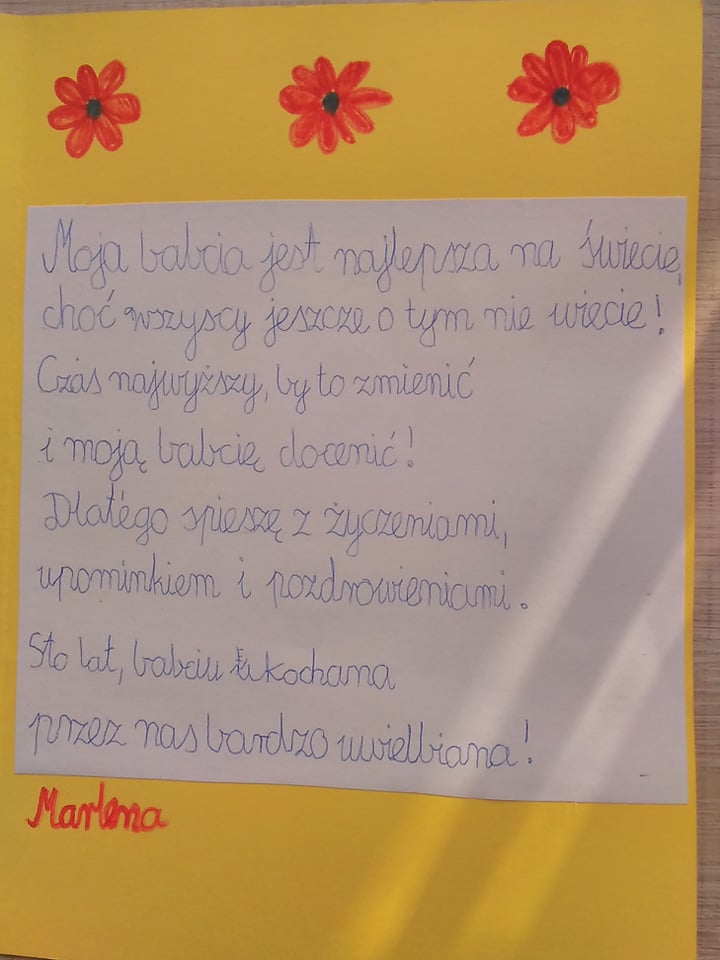 Moja babcia jest najlepsza na świecie,
choć wszyscy jeszcze o tym nie wiecie!
Czas najwyższy, by to zmienić
i moją babcię docenić!
Dlatego spieszę z życzeniami,
upominkiem i pozdrowieniami.
Sto lat, babciu kochana
przez nas bardzo uwielbiana!
Marlena